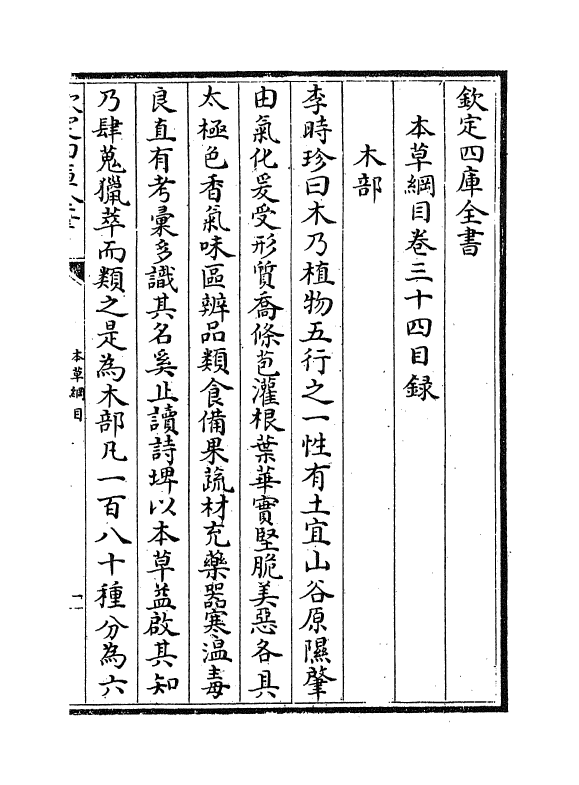 欽定四庫全書
本草綱目卷三十四目録
木部
李時珍曰木乃植物五行之一性有土宜山谷原隰肇
由氣化爰受形質喬條苞灌根葉華實堅脆美惡各具
太極色香氣味區辨品類食備果蔬材充藥器寒温毒
良直有考彙多識其名奚止讀詩埤以本草益啟其知
乃肆蒐獵萃而類之是為木部凡一百八十種分為六
本草綱目